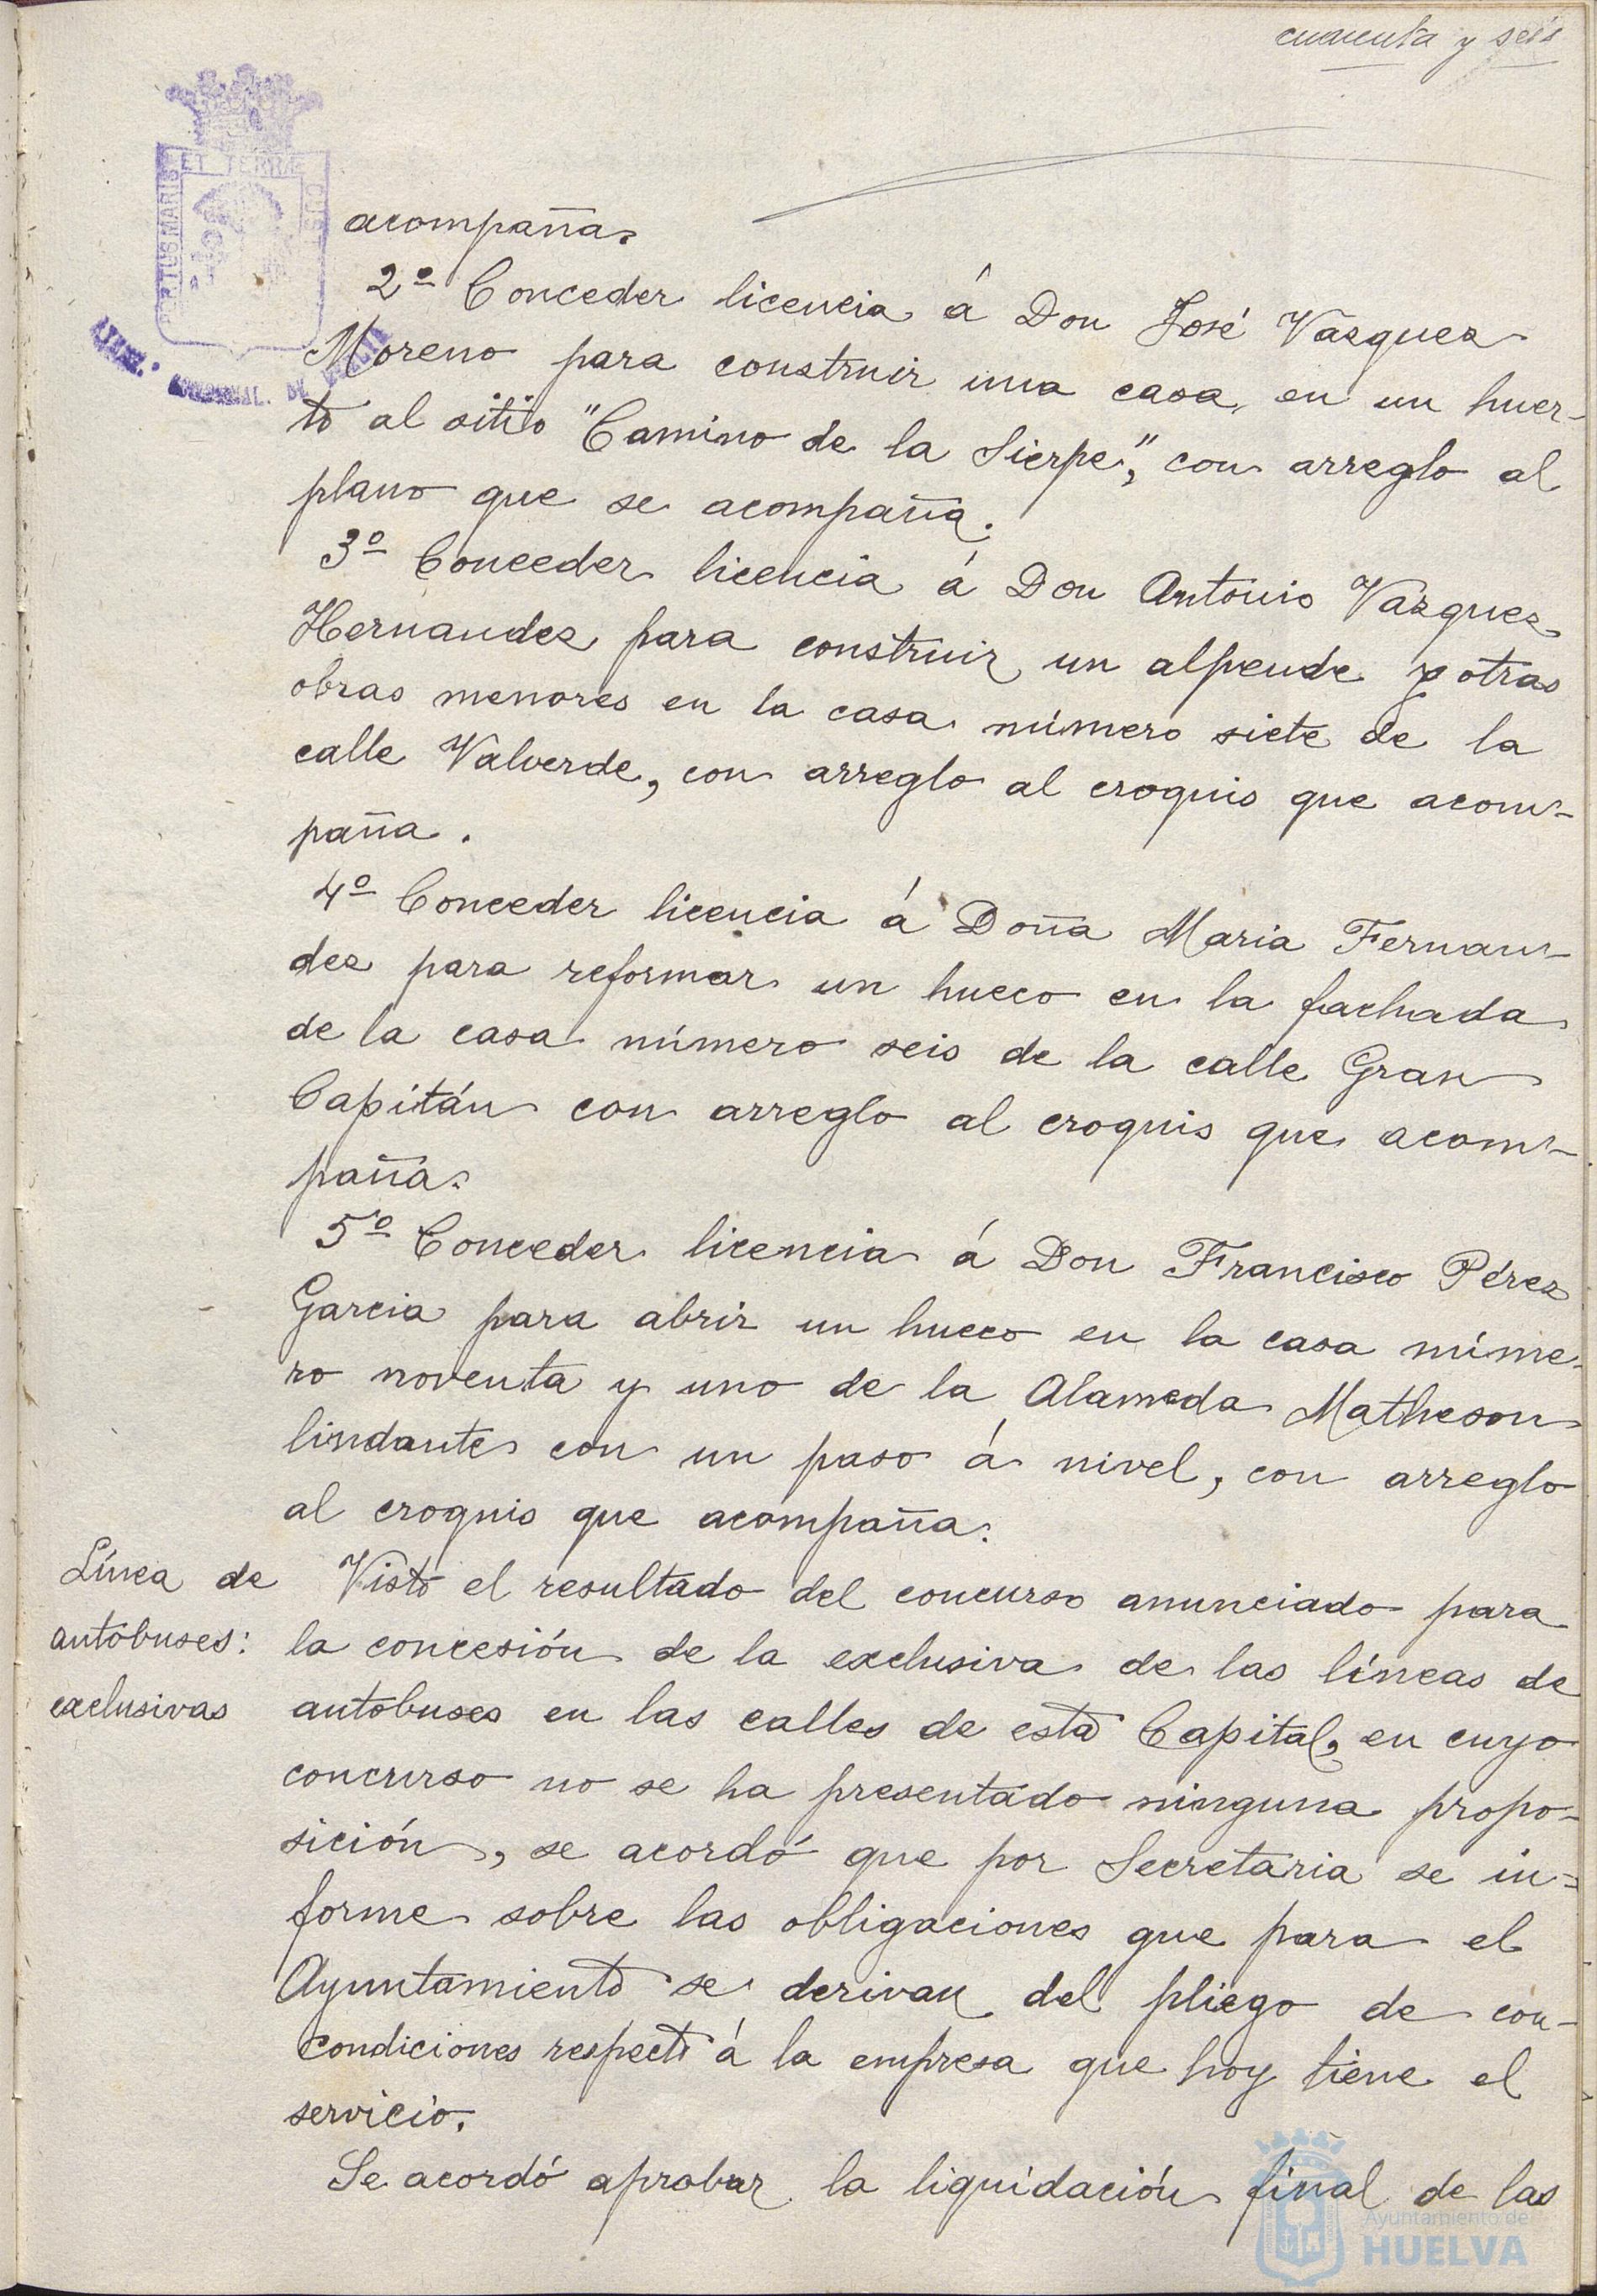 cuarenta y seis
PORTUS MARIS ET TERRAE CUST
AYUNT. CONSTITUCIONAL. DE HUELVA
acompaña.
2º Conceder licencia á Don José Vazquez
Moreno para construir una casa en un huer-
to al sitio "Camino de la Sierpe", con arreglo al
plano que se acompaña.
3º Conceder licencia á Don Antonio Vazquez
Hernandez para construir un alpende y otras
obras menores en la casa número siete de la
calle Valverde, con arreglo al croquis que acom-
paña.
4º Conceder licencia á Doña Maria Fernan-
dez para reformar un hueco en la fachada
de la casa número seis de la calle Gran
Capitán con arreglo al croquis que acom-
paña.
5º Conceder licencia á Don Francisco Pérez
Garcia para abrir un hueco en la casa núme-
ro noventa y uno de la Alameda Matheson
lindante con un paso á nivel, con arreglo
al croquis que acompaña.
Línea de
autobuses:
exclusivas
Visto el resultado del concurso anunciado para
la concesión de la exclusiva de las líneas de
autobuses en las calles de esta Capital, en cuyo
concurso no se ha presentado ninguna propo-
sición, se acordó que por Secretaria se in-
forme sobre las obligaciones que para el
Ayuntamiento se derivan del pliego de con-
condiciones respecto á la empresa que hoy tiene el
servicio.
Se acordó aprobar la liquidación final de las
Ayuntamiento de
HUELVA